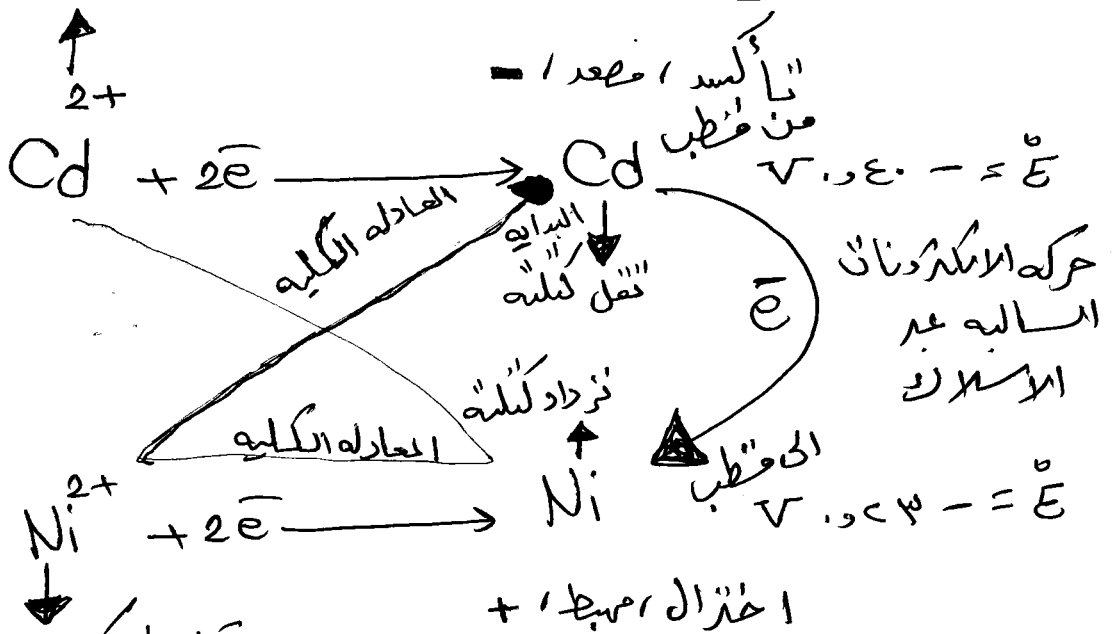 تأكسد / مصعد / -
2+
Cd + 2e → Cd
من قطب
E° = - ٠,٤٠ V
المعادله الكليه
البدايه
تقل كتلته
e
حركه الالكترونات
السالبه عبر
الاسلاك
تزداد كتلته
المعادله الكليه
الى قطب
Ni2+ + 2e → Ni
E° = - ٠,٢٣ V
اختزال / مهبط / +